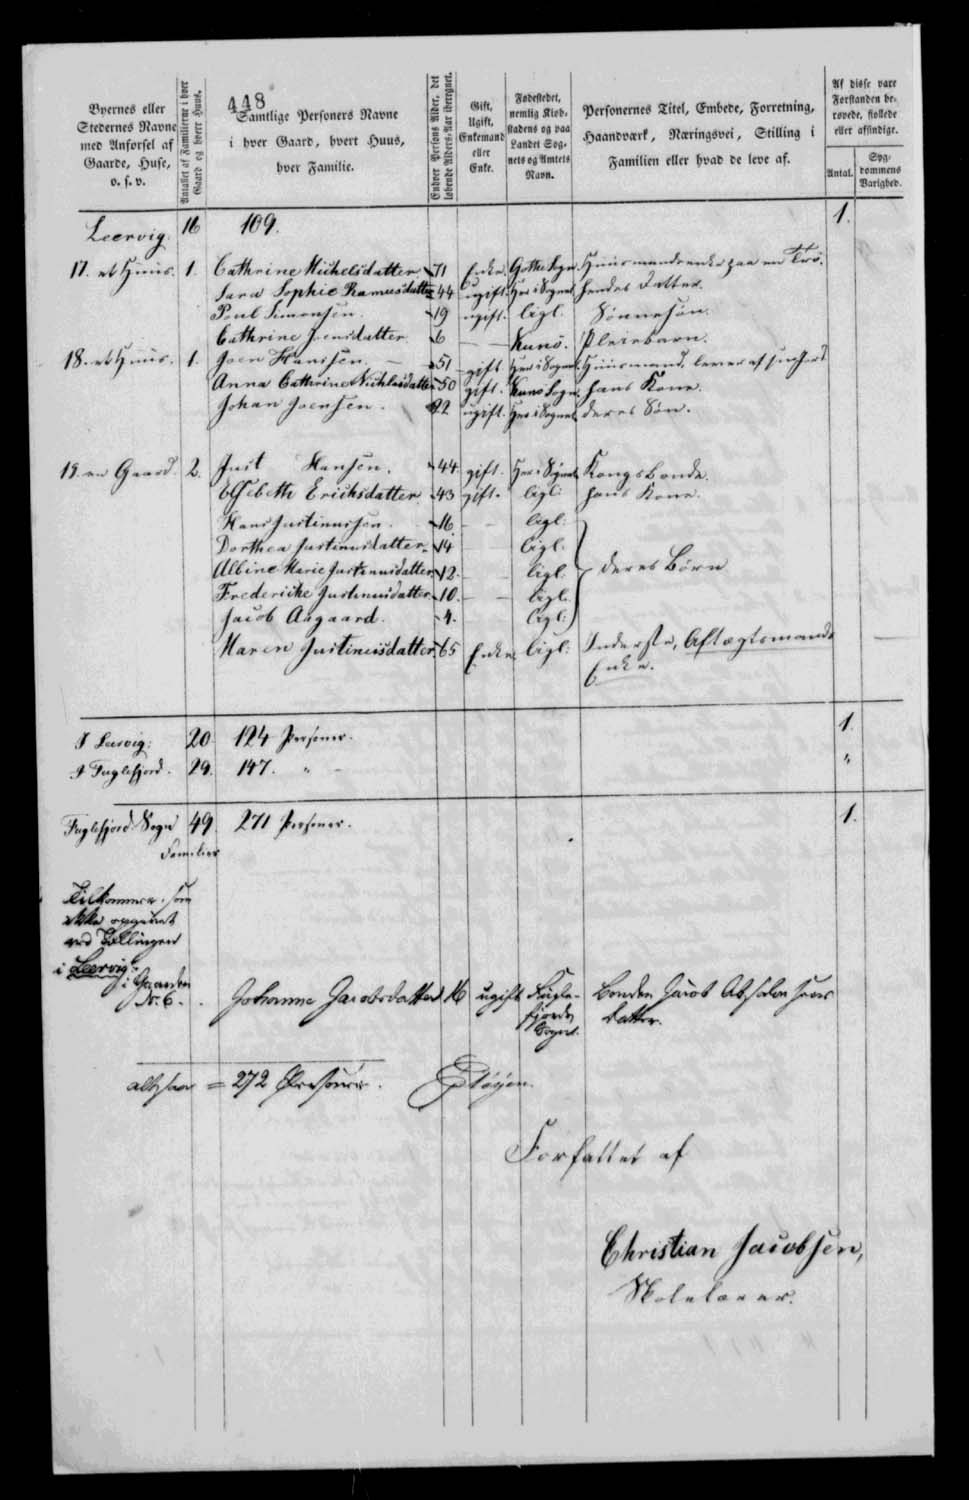 448
Byernes eller Stedernes Navne med Anførsel af Gaarde, Huse, o. s. v.
Antallet af Familierne i hver Gaard og hvert Huus.
Samtlige Personers Navne i hver Gaard, hvert Huus, hver Familie.
Enhver Persons Alder, det løbende Alders-Aar iberegnet.
Gift, Ugift, Enkemand eller Enke.
Fødestedet, nemlig Kjøbstadens og paa Landet Sognets og Amtets Navn.
Personernes Titel, Embede, Forretning, Haandværk, Næringsvei, Stilling i Familien eller hvad de leve af.
Af disse vare Forstanden berøvede, fjollede eller afsindige.
Antal. Sygdommens Varighed.
Leervig. 16 109. 1.
17. et Huus. 1. Cathrine Michelsdatter 71 Enke. Gothe Sogn Huusmandsenke paa en
Sara Sophie Ramusdatter 44 ugift. Her i Sognet hendes Datter.
Poul Simonsen. 19 ugift. ligl. Sønnesøn.
Cathrine Joensdatter 6 — — Kunø. Pleiebarn.
18. et Huus. 1. Joen Hanssen. — 51 gift Her i Sognet Huusmand, lever af
Anna Cathrine Nichlasdatter 50 gift. Kunø Sogn. hans Kone.
Johan Joensen. 22 ugift. Her i Sognet deres Søn.
19. en Gaard. 2. Just Hansen. 44. gift. Her i Sognet Kongsbonde.
Elsebeth Erichsdatter 43 gift. ligl. hans Kone.
Hans Justinussen. 16. — — ligl:
Dorthea Justinusdatter. 14 — — ligl.
Albine Marie Justinusdatter 12. — — ligl. deres Børn
Frederiche Justinusdatter 10. — — ligl.
Jacob Aagaard. 4. ligl:
Maren Justinusdatter. 65 Enke ligl: Inderste, Aftægtsmands
Enke.
I Leervig: 20. 124 Personer. 1.
I Fuglefjord. 29. 147. " — "
Fuglefjord Sogn 49. 271 Personer. 1.
Familier
Tilkommer, som
ikke opgivet
ved Tællingen
i Leervig:
i Gaarden
No. 6. Johanne Jacobsdatter 16 ugift Fuglefjords Sogn. Bonden Jacob Absalonsens
Datter.
altsaa = 272 Personer.
Forfattet af
Christian Jacobsen,
Skolelærer.